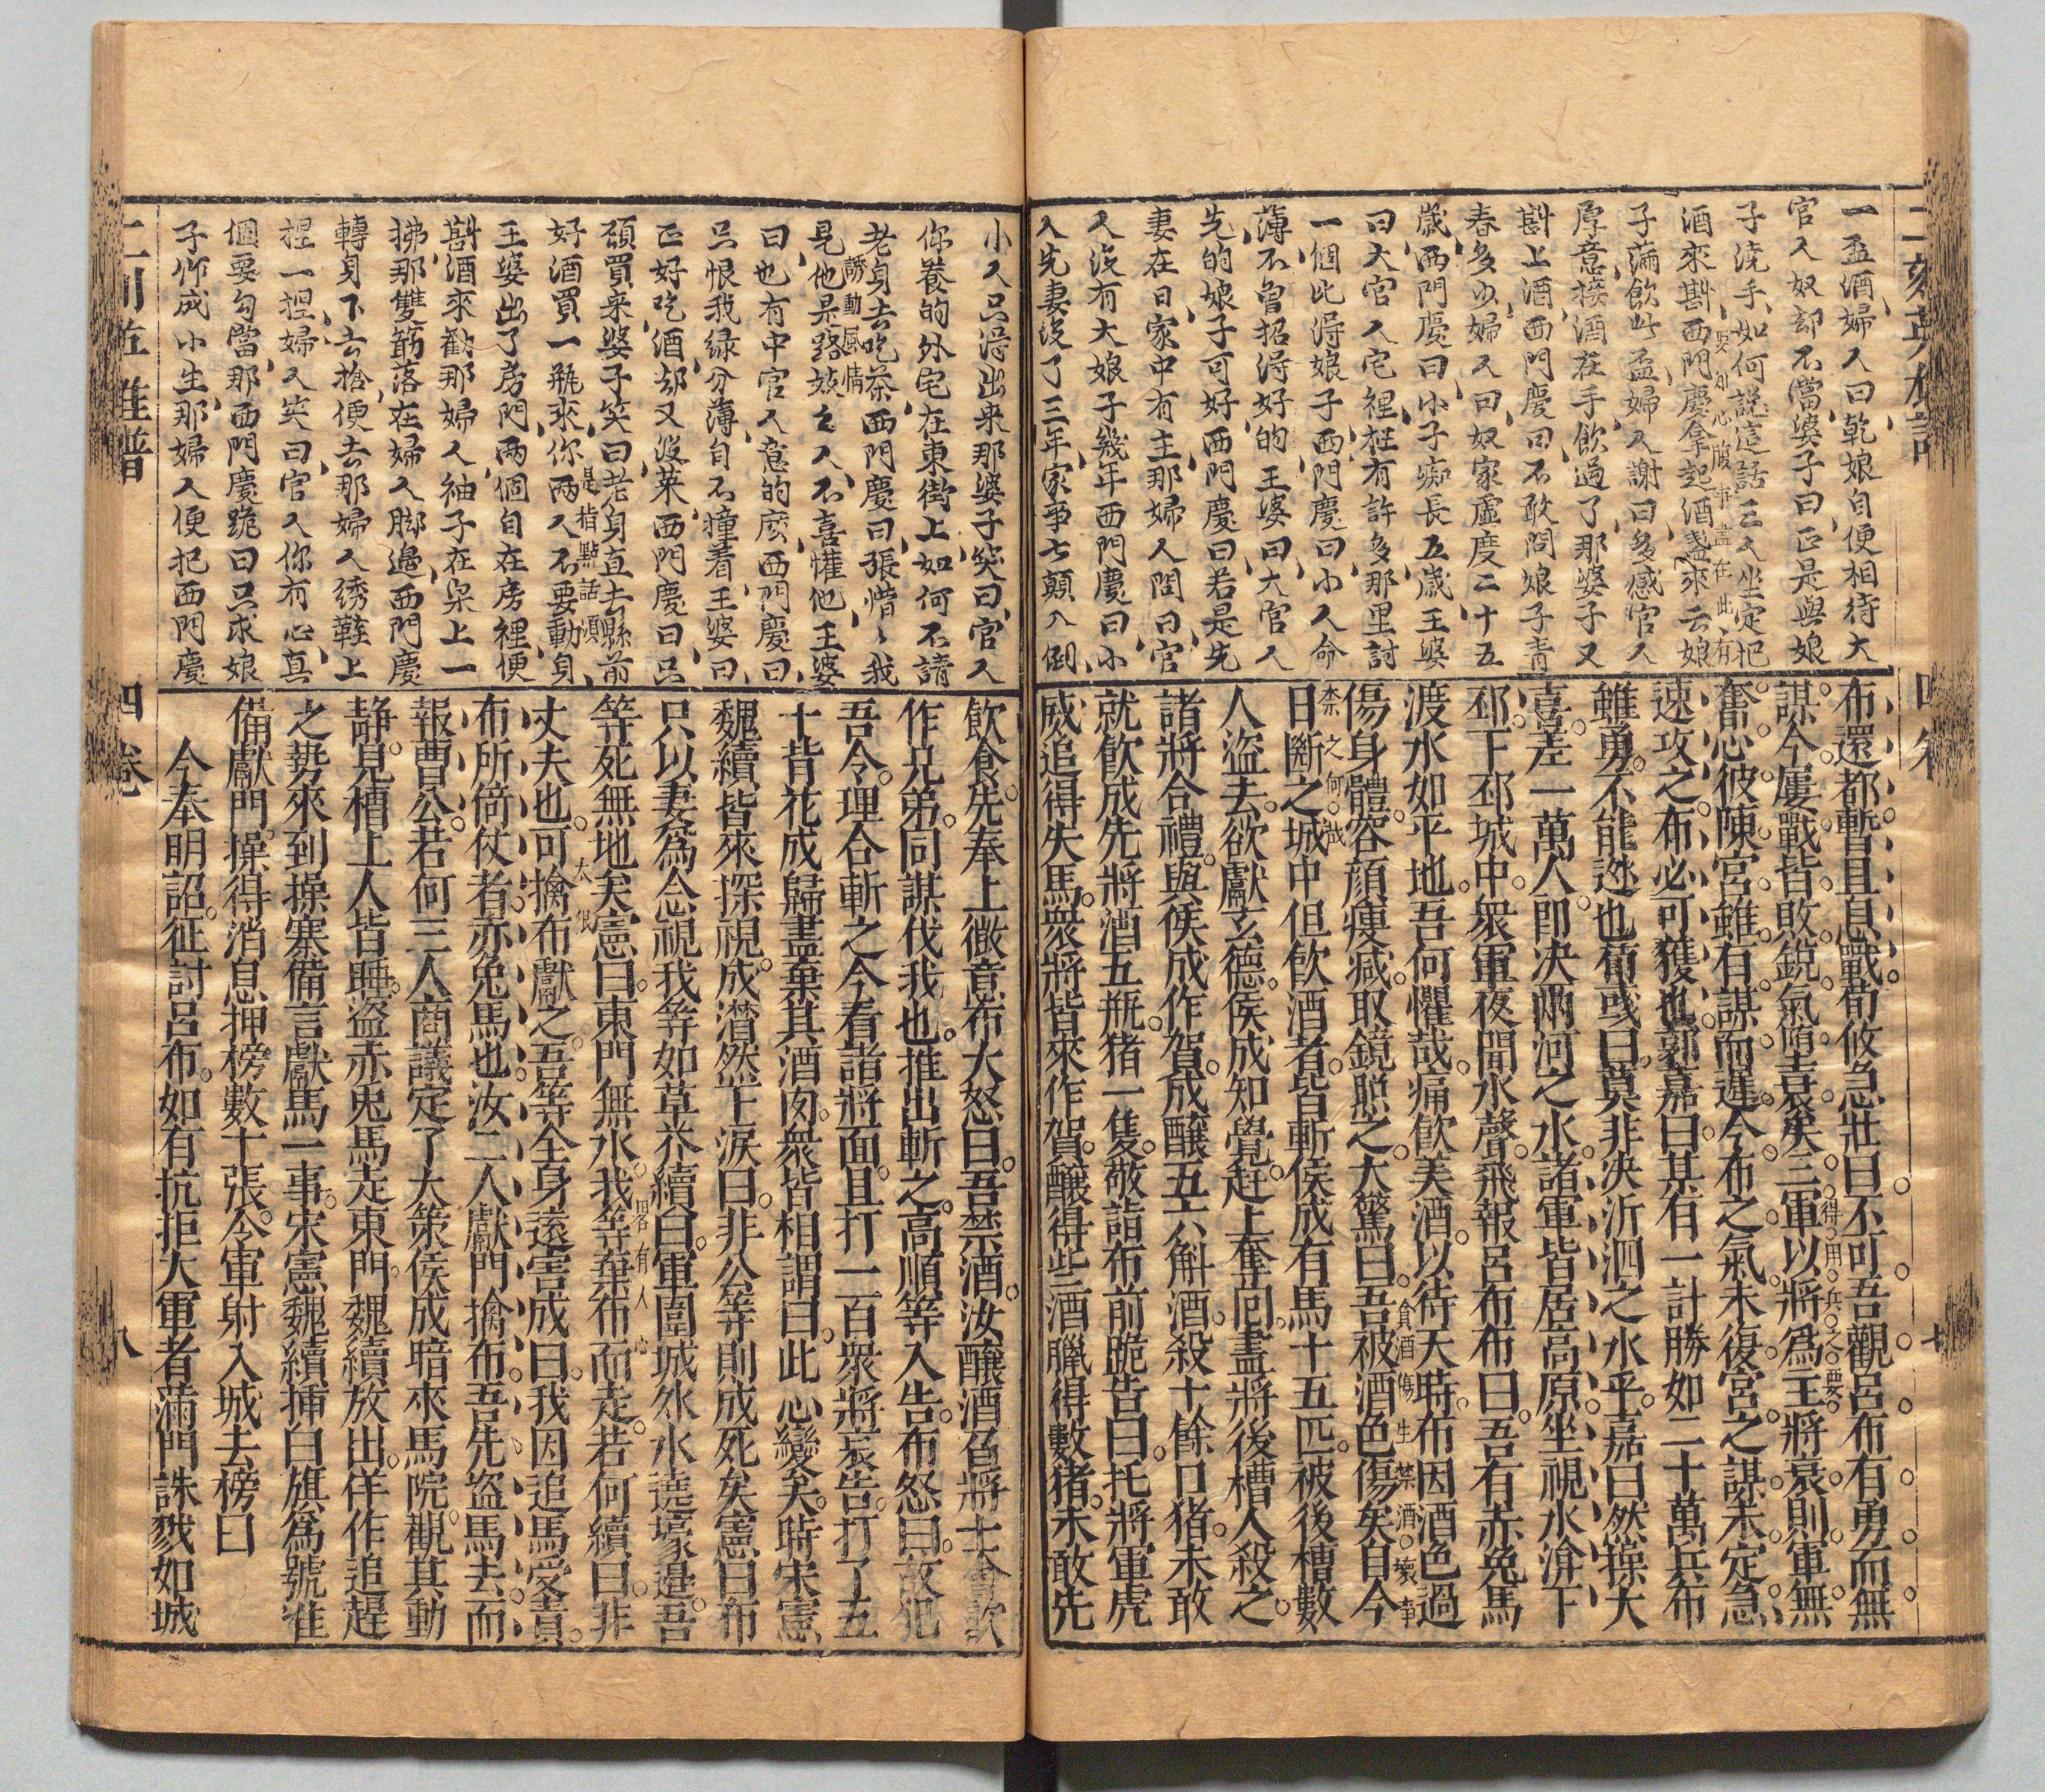 二刻英雄譜
四卷
一盃酒婦人曰乾娘自便相待大
官人奴却不當婆子曰正是與娘
子澆手如何說這話三人坐定把
要知心腹事盡在此
酒來斟西門慶拿起酒盞來云娘
子滿飲此盃婦人謝曰多感官人
厚意接酒在手飲過了那婆子又
斟上酒西門慶曰不敢問娘子青
春多少婦人曰奴家虛度二十五
歲西門慶曰小子痴長五歲王婆
曰大官人宅裡枉有許多那里討
一個此淂娘子西門慶曰小人命
薄不曾招淂好的王婆曰大官人
先的娘子可好西門慶曰若是先
妻在日家中有主那婦人問曰官
人沒有大娘子幾年西門慶曰小
人先妻沒了三年家事七顛八倒
布還都暫且息戰荀攸急止曰不可吾觀呂布有勇而無
謀今屢戰皆敗銳氣墮衰矣三軍以將爲主將衰則軍無
得用兵之要
奮心彼陳宮雖有謀而遲今布之氣未復宮之謀未定急
速攻之布必可獲也郭嘉曰某有一計勝如二十萬兵布
雖勇不能逃也荀彧曰莫非决沂泗之水乎嘉曰然操大
喜差一萬人即决兩河之水諸軍皆居高原坐視水渰下
邳下邳城中衆軍夜聞水聲飛報呂布布曰吾有赤兔馬
渡水如平地吾何懼哉痛飲美酒以待天時布因酒色過
貪酒傷生禁酒壞事
傷身體容顏瘦减取鏡照之大驚曰吾被酒色傷矣自今
禁之何哉
日斷之城中但飲酒者皆斬侯成有馬十五匹被後槽數
人盜去欲獻玄德侯成知覺赶上奪回盡將後槽人殺之
諸將合禮與侯成作賀成釀五六斛酒殺十餘口猪未敢
就飲成先將酒五瓶猪一隻敬詣布前跪告曰托將軍虎
威追得失馬衆將皆來作賀釀得些酒臘得數猪未敢先
小人只淂出來那婆子笑曰官人
你養的外宅在東街上如何不請
老身去吃茶西門慶曰張惜惜我
誘動風情
見他是路歧之人不喜懽他王婆
曰也有中官人意的麽西門慶曰
只恨我緣分薄自不撞着王婆曰
正好吃酒却又沒菜西門慶曰只
煩買來婆子笑曰老身直去縣前
是指點話頭
好酒買一瓶來你兩人不要動身
王婆出了房門兩個自在房裡便
斟酒來勸那婦人袖子在桌上一
拂那雙筯落在婦人脚邊西門慶
轉身下去拾便去那婦人綉鞋上
捏一捏婦人笑曰官人你有心真
個要勾當那西門慶跪曰只求娘
子作成小生那婦人便把西門慶
飲食先奉上微意布大怒曰吾禁酒汝釀酒色將士會飲
作兄弟同謀伐我也推出斬之高順等入告布怒曰故犯
吾令理合斬之今看諸將面且打一百衆將哀告打了五
十背花成歸盡棄其酒肉衆皆相謂曰此心變矣時宋憲
魏續皆來探視成潸然下淚曰非公等則成死矣憲曰布
只以妻爲念視我等如草芥續曰軍圍城外水遶壕邊吾
等死無地矣憲曰東門無水我等棄布而走若何續曰非
畧有人心
太狠
丈夫也可擒布獻之吾等全身遠害成曰我因追馬受責
布所倚仗者亦兔馬也汝二人獻門擒布吾先盜馬去而
報曹公君何三人商議定了大策侯成暗來馬院觀其動
靜見槽上人皆睡盜赤兎馬走東門魏續放出佯作追趕
之勢來到操寨備言獻馬一事宋憲魏續揷白旗爲號准
備獻門操得消息押榜數十張令軍射入城去榜曰
今奉明詔征討呂布如有抗拒大軍者滿門誅戮如城
二刻英雄譜
四卷
八